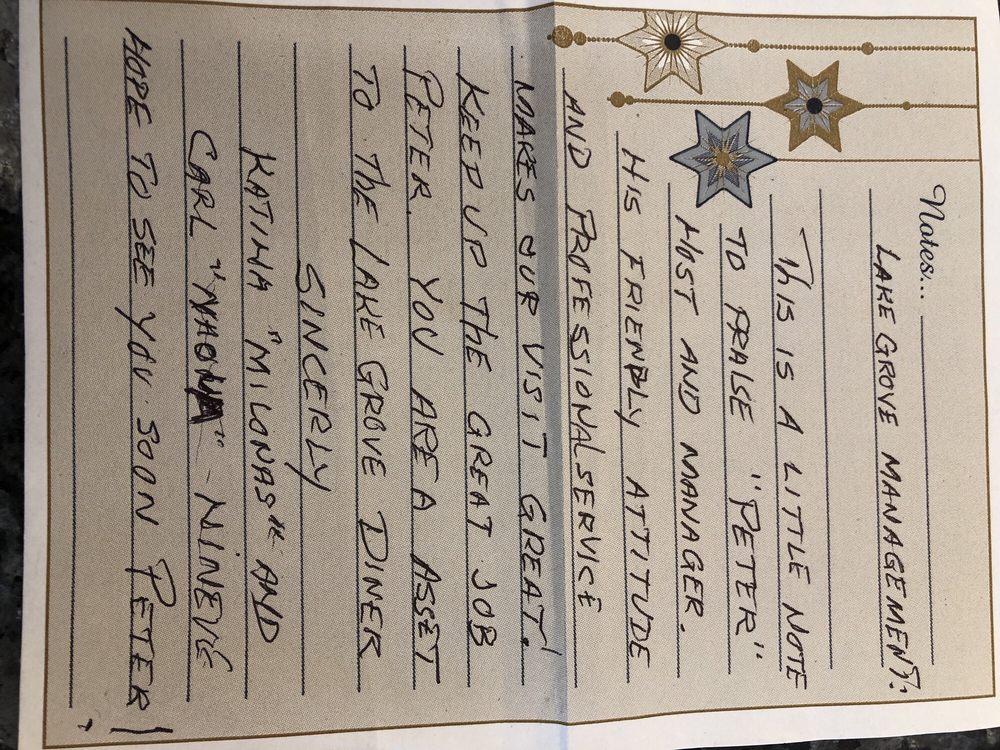 Notes...
LAKE GROVE MANAGEMENT:
THIS IS A LITTLE NOTE
TO PRAISE "PETER"
HOST AND MANAGER.
HIS FRIENDLY ATTITUDE
AND PROFESSIONAL SERVICE
MAKES OUR VISIT GREAT!
KEEP UP THE GREAT JOB
PETER. YOU ARE A ASSET
TO THE LAKE GROVE DINER
SINCERLY
KATINA "MILONAS" AND
CARL - NINEVE
HOPE TO SEE YOU SOON PETER!